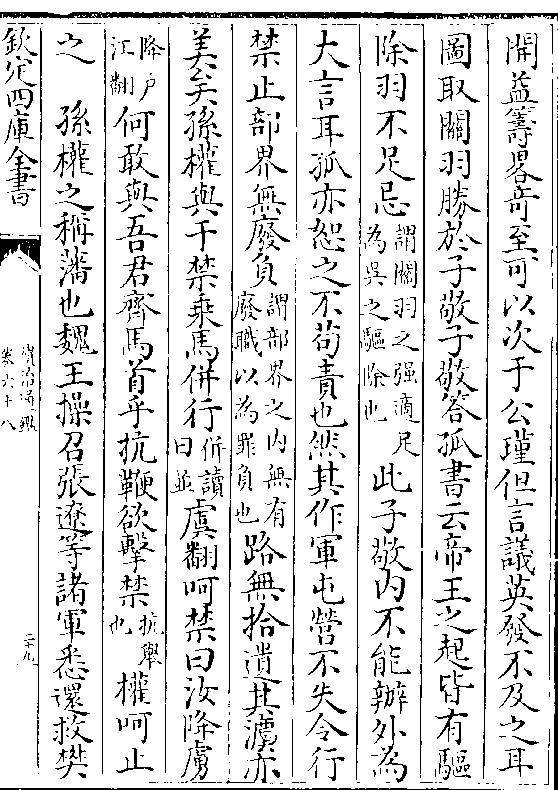 開益籌畧奇至可以次于公瑾但言議英發不及之耳
圖取關羽勝於子敬子敬答孤書云帝王之起皆有驅
除羽不足忌謂關羽之强適足為吳之驅除也此子敬内不能辦外為
大言耳孤亦恕之不苟責也然其作軍屯營不失令行
禁止部界無廢負謂部界之内無有廢職以為罪負也路無拾遺其灋亦
美矣孫權與于禁乗馬併行併讀曰並虞翻呵禁曰汝降虜
何敢與吾君齊馬首乎抗鞭欲擊禁抗舉也權呵止
降户江翻
之　孫權之稱藩也魏王操召張遼等諸軍悉還救樊
欽定四庫全書
資治通鑑
卷六十八
二十九